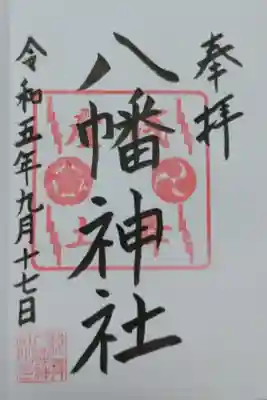 奉拝
八幡神社
令和五年九月十七日